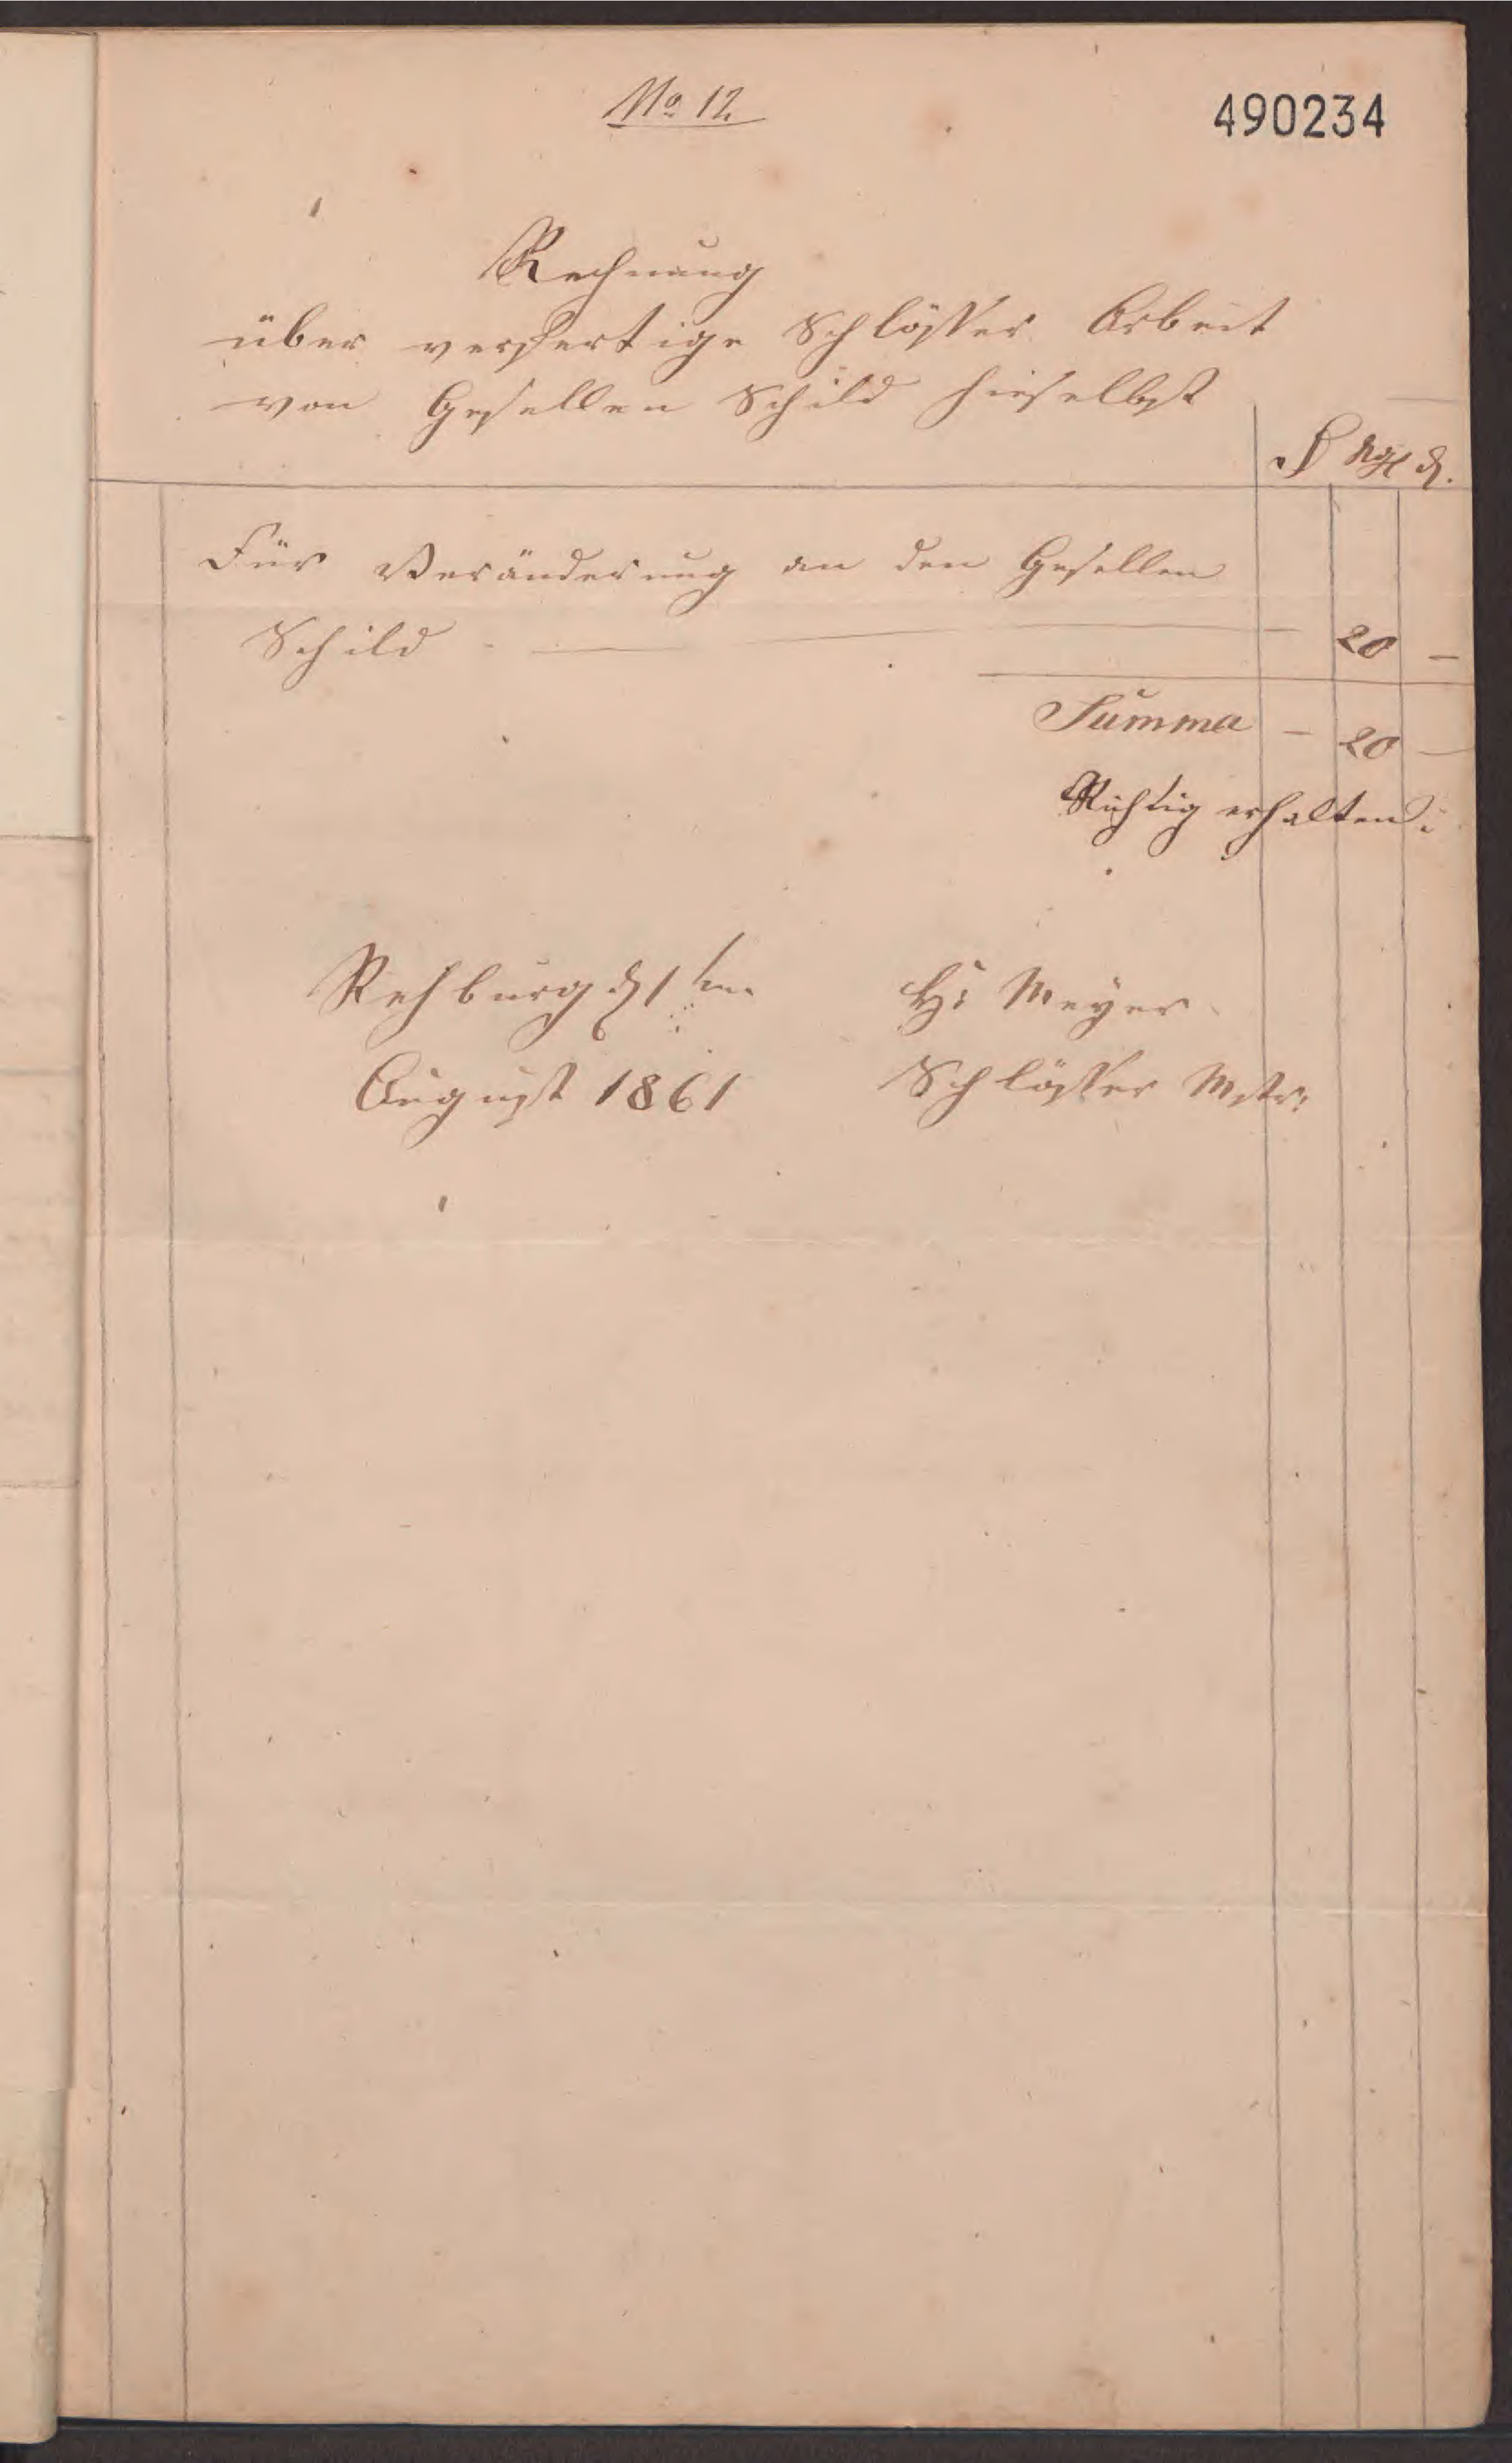 No 12.
490234
Rechnung
über verfertige Schlösser Arbeit
von Gesellen Schild hieselbst
Für Veränderung an den Gesellen
Schild - — — 20 —
Summa — 20 —
Richtig erhalten:
Rehburg d 1ten
August 1861
H: Meyer
Schlösser Mstr: